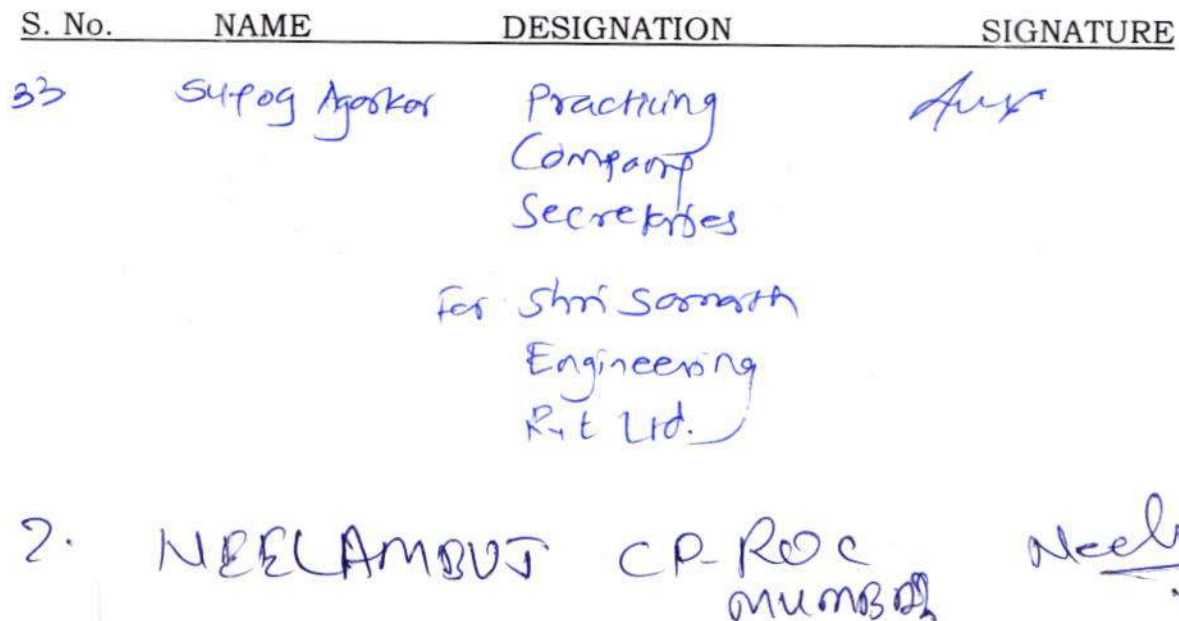 S. No. NAME DESIGNATION SIGNATURE
33 Agarkar Practicing
Company
Secretaries
For Shri Somnath
Engineering
Pvt Ltd.
2. NEELAMBUJ CP-ROC Neel
MUMBAI